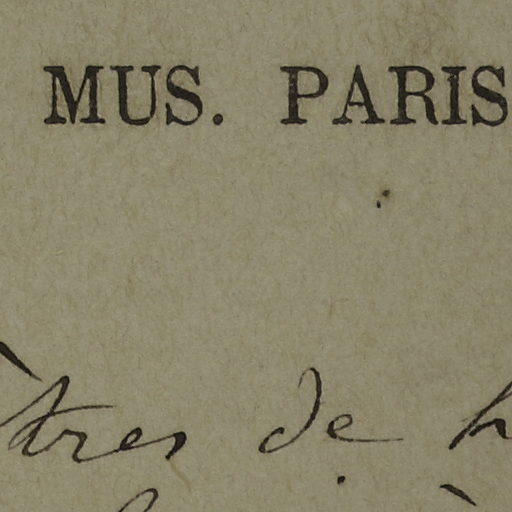 MUS. PARIS
ètres de h